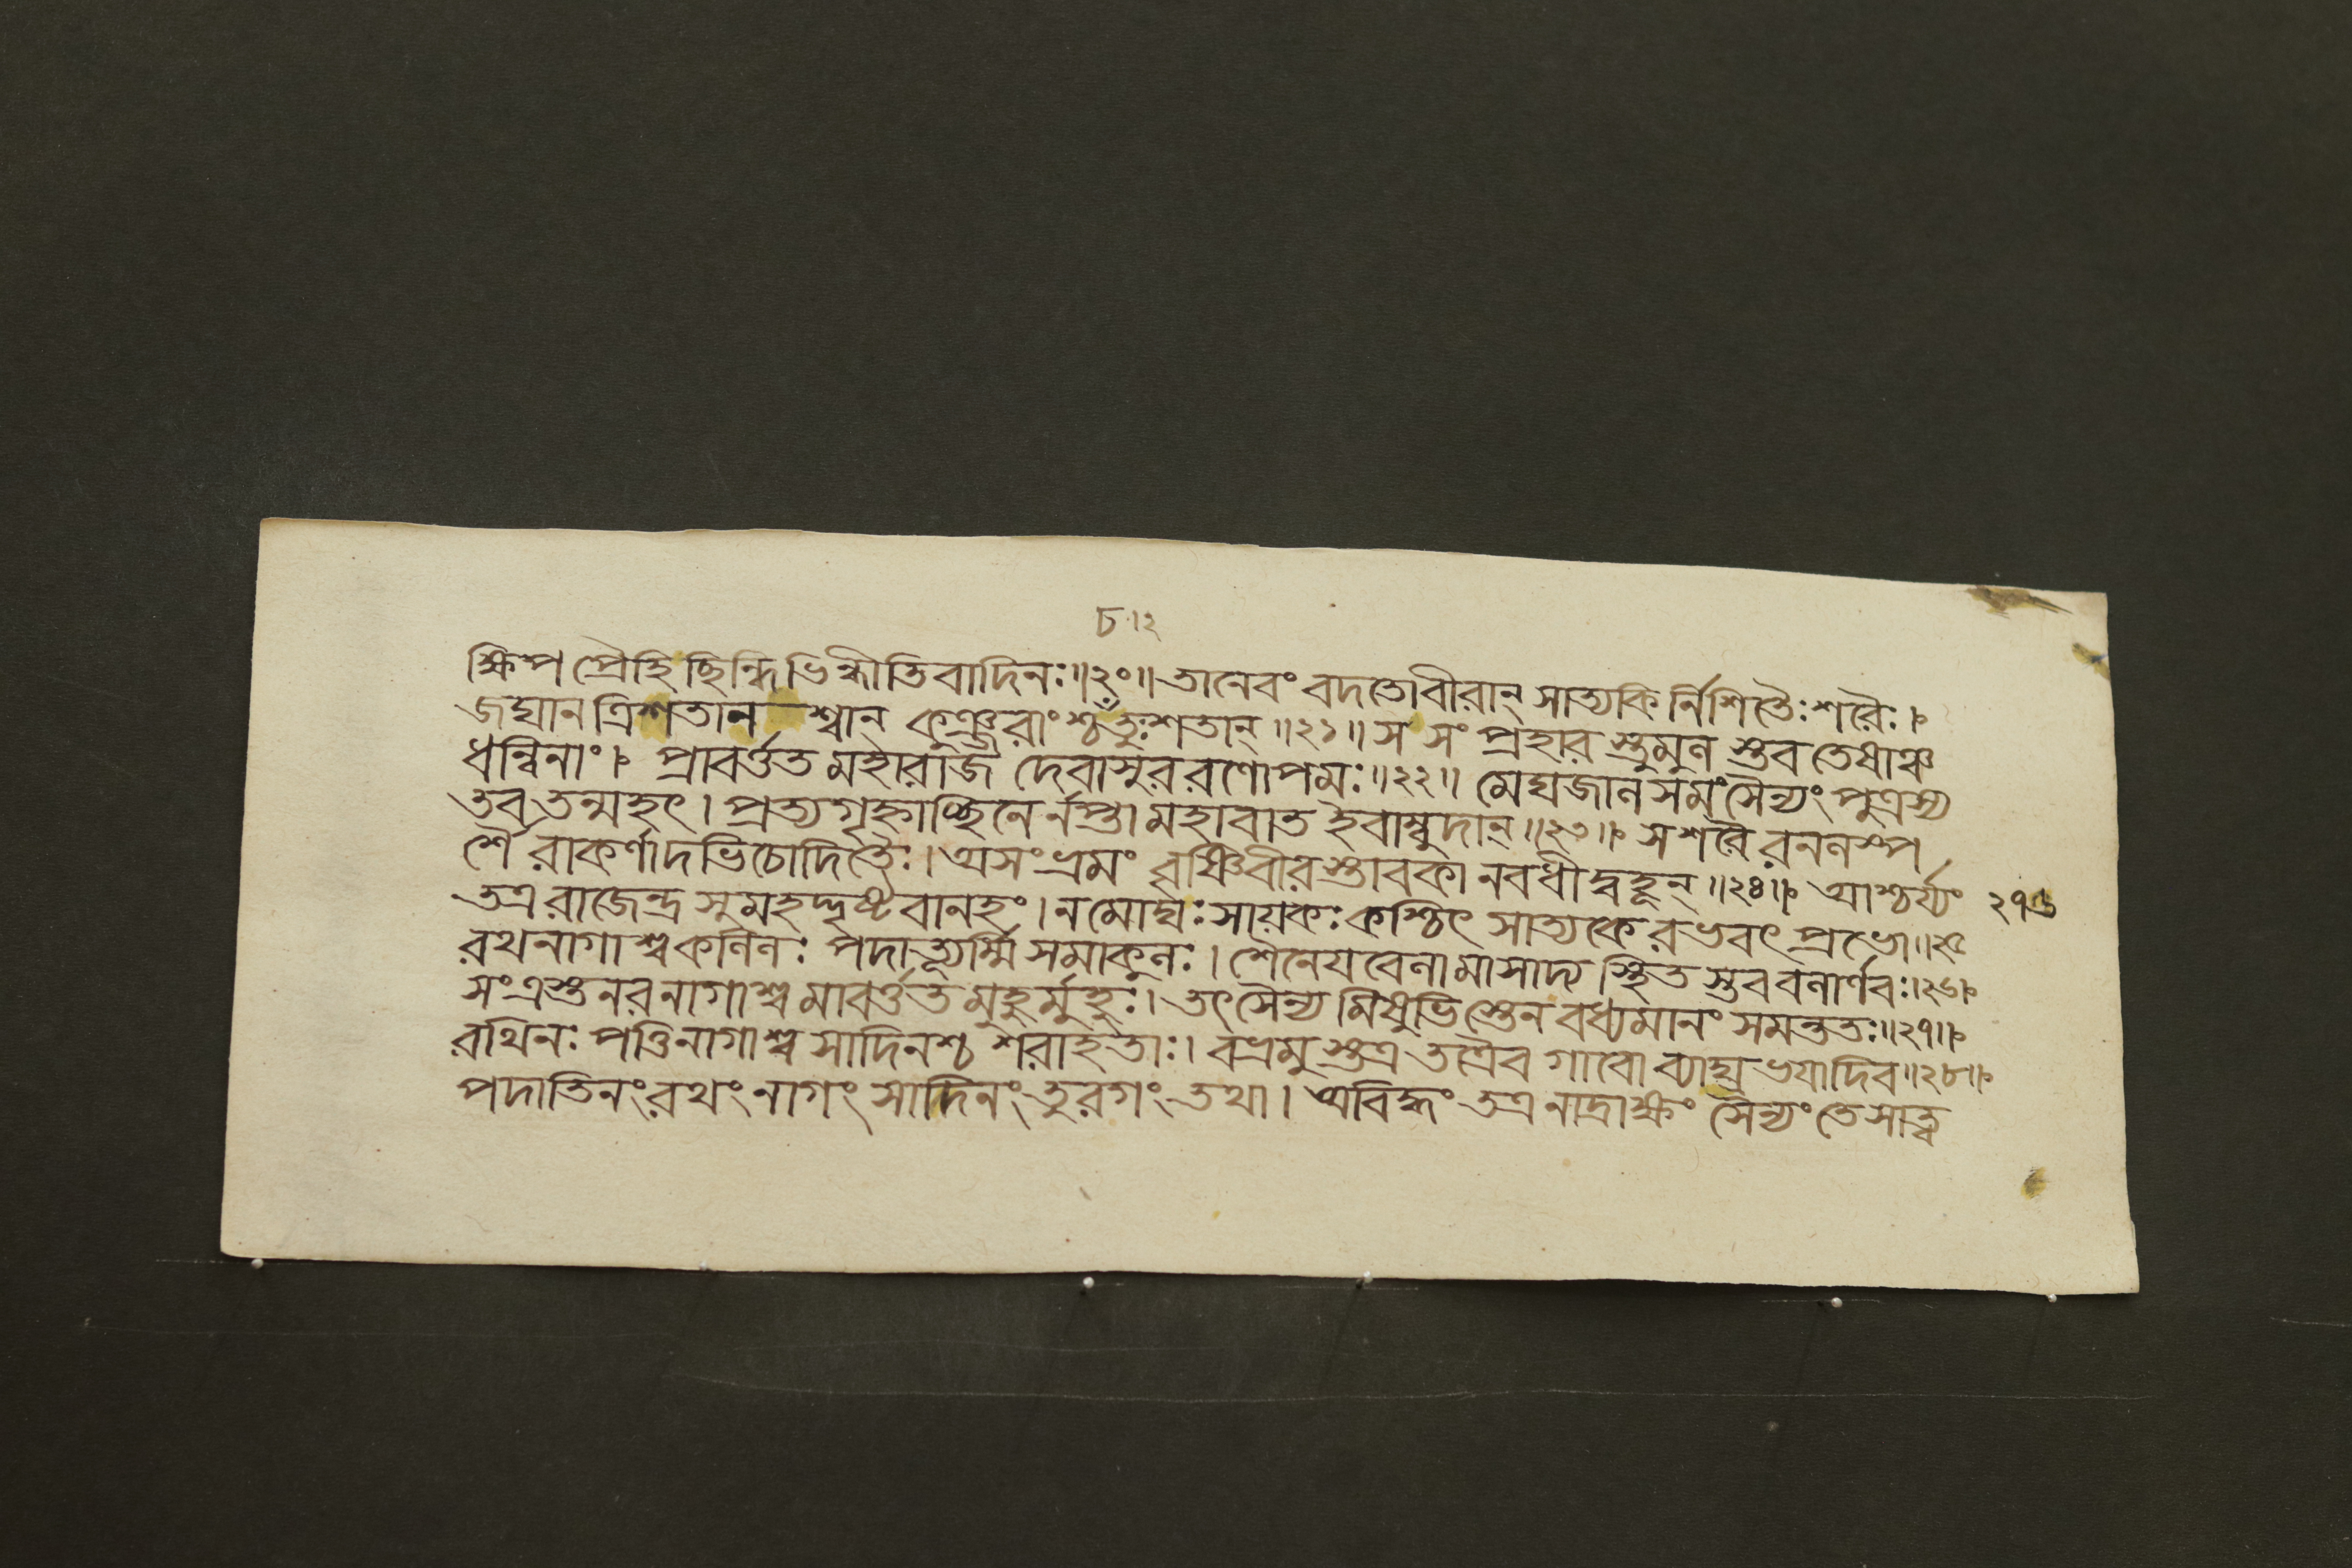 ৮।২
ক্ষিপ প্রৈহি ছিন্দি ভিন্ধীতিবাদিনঃ॥২০॥ তানেবং বদতোবীরান্ সাত্যকির্নিশিতৈঃ শরৈঃ।
জঘান ত্রিশতানশ্বান্ কুঞ্জরাংশ্চতুঃশতান্॥২১॥ স সংপ্রহারস্তুমুলস্তব তেষাঞ্চ
ধন্বিনাং। প্রাবর্ত্তত মহারাজ দেবাসুররণোপমঃ॥২২॥ মেঘজালসমং সৈন্যং পুত্রস্য
তব তন্মহৎ। প্রত্যগৃহ্নাচ্ছিনের্নপ্তা মহাবাত ইবাম্বুদান্॥২৩॥ স শরৈরনলস্প
র্শৈরাকর্ণাদভিচোদিতৈঃ। অসংভ্রমং বৃষ্ণিবীরস্তাবকানবধীদ্বহূন্॥২৪॥ আশ্চর্য্যং
তত্র রাজেন্দ্র সুমহদ্দৃষ্টবানহং। ন মোঘঃ সায়কঃ কশ্চিৎ সাত্যকেরভবৎ প্রভো॥২৫
২৭৬
রথনাগাশ্বকলিলঃ পদাত্যূর্ম্মিসমাকুলঃ। শৈনেয়বেলামাসাদ্য স্থিতস্তব বলার্ণবঃ।২৬।
সংত্রস্তনরনাগাশ্বমাবর্ত্তত মুহুর্মুহুঃ। তৎ সৈন্যমিষুভিস্তেন বধ্যমানং সমন্ততঃ॥২৭॥
রথিনঃ পত্তিনাগাশ্ব সাদিনশ্চ শরাহতাঃ। বভ্রমুস্তত্র তত্রৈব গাবো ব্যাঘ্রভয়াদিব॥২৮॥
পদাতিনং রথং নাগং সাদিনং তুরগং তথা। অবিদ্ধং তত্র নাদ্রাক্ষং সৈন্যং তে সাত্ব